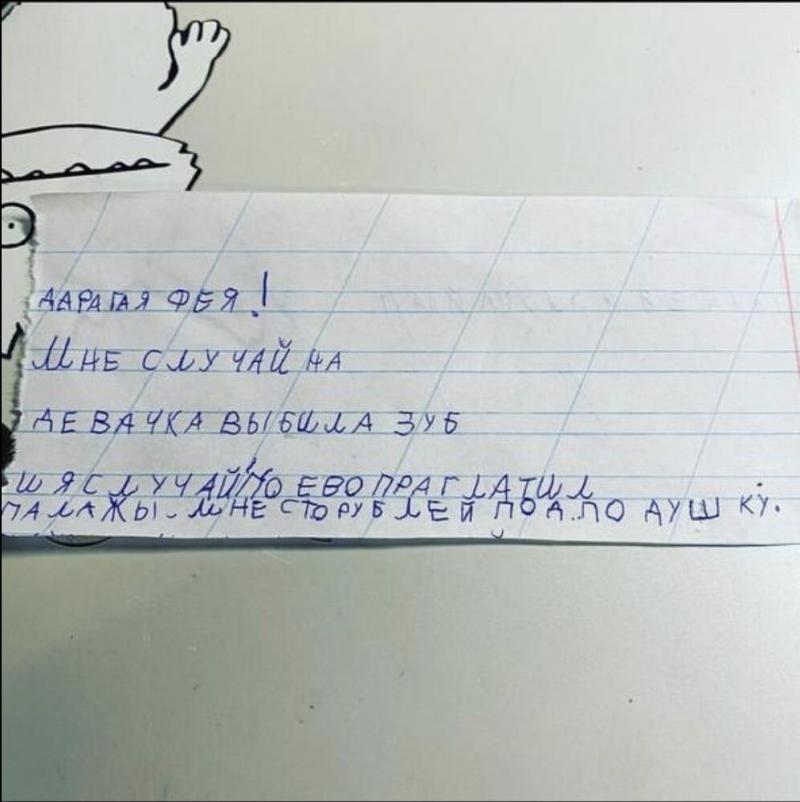 ДАРАГАЯ ФЕЯ!
МНЕ СЛУЧАЙ НА
ДЕВАЧКА ВЫБИЛА ЗУБ
И Я СЛУЧАЙНО ЕВО ПРАГЛАТИЛ
ПАЛАЖЫ МНЕ СТО РУБЛЕЙ ПОД ПО ДУШКУ.